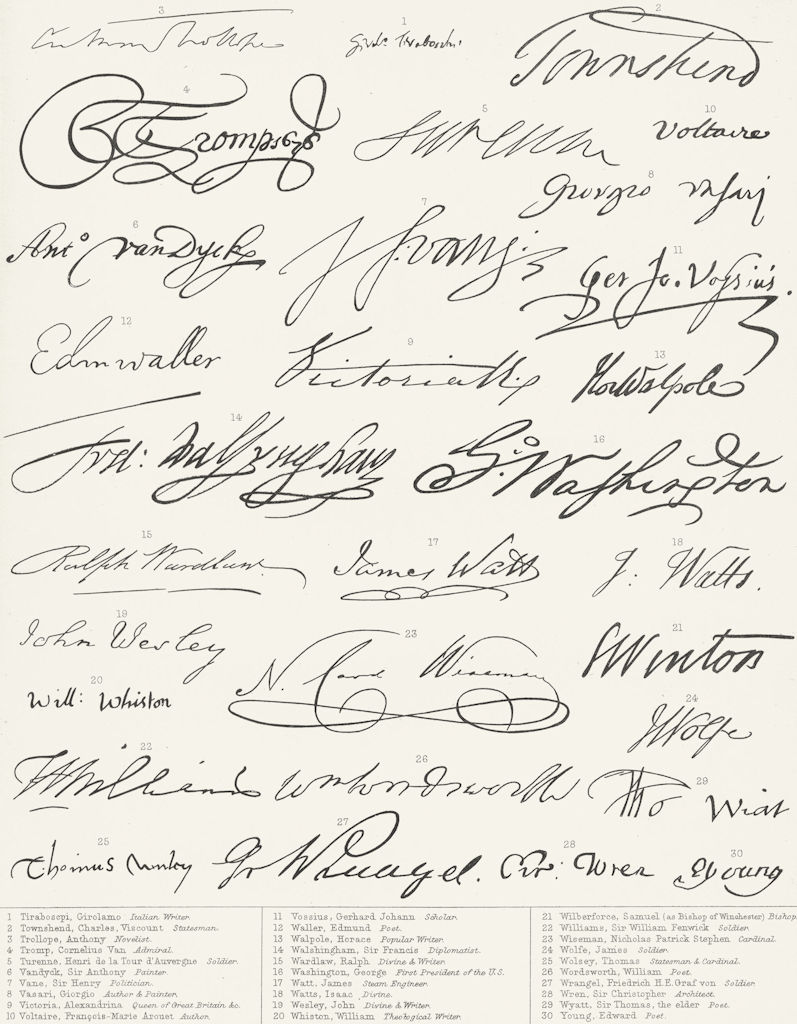 3
1
2
Anthony Trollope
Girolo Tiraboschi
Townshend
4
5
10
CTromp
Turenne
Voltaire
8
Giorgio Vasari
6
7
11
Anto vanDyck
H. Vane
Ger Jo. Vossius.
12
9
13
Edm waller
Victoria R.
Hor Walpole
14
16
Fra: Walsyngham
Go. Washington
15
17
18
Ralph Wardlaw.
James Watt
J: Watts.
19
23
21
John Wesley
N. Card Wiseman
S Winton
20
24
Will: Whiston
J Wolfe
22
26
29
Williams
Wm Wordsworth
Tho Wiat
25
27
28
30
Gr Wrangel.
Chr: Wren
E Young
1 Tiraboscpi, Girolamo Italian Writer.
2 Townshend, Charles, Viscount Statesman.
3 Trollope, Anthony Novelist.
4 Tromp, Cornelius Van Admiral.
5 Turenne. Henri de la Tour d'Auvergne Soldier.
6 Vandyck, Sir Anthony Painter.
7 Vane, Sir Henry Politician.
8 Vasari, Giorgio Author & Painter.
9 Victoria, Alexandrina Queen of Great Britain &c.
10 Voltaire, François-Marie Arouet Author.
11 Vossius, Gerhard Johann Scholar.
12 Waller, Edmund Poet.
13 Walpole, Horace Popular Writer.
14 Walshingham, Sir Francis Diplomatist.
15 Wardlaw, Ralph Divine & Writer.
16 Washington, George First President of the U.S.
17 Watt. James Steam Engineer.
18 Watts, Isaac Divine.
19 Wesley, John Divine & Writer.
20 Whiston, William Theological Writer.
21 Wilberforce, Samuel (as Bishop of Winchester) Bishop.
22 Williams, Sir William Fenwick Soldier.
23 Wiseman, Nicholas Patrick Stephen Cardinal.
24 Wolfe, James Soldier.
25 Wolsey, Thomas Statesman & Cardinal.
26 Wordsworth, William Poet.
27 Wrangel, Friedrich H.E. Graf von Soldier.
28 Wren, Sir Christopher Architect.
29 Wyatt, Sir Thomas, the elder Poet.
30 Young, Edward Poet.